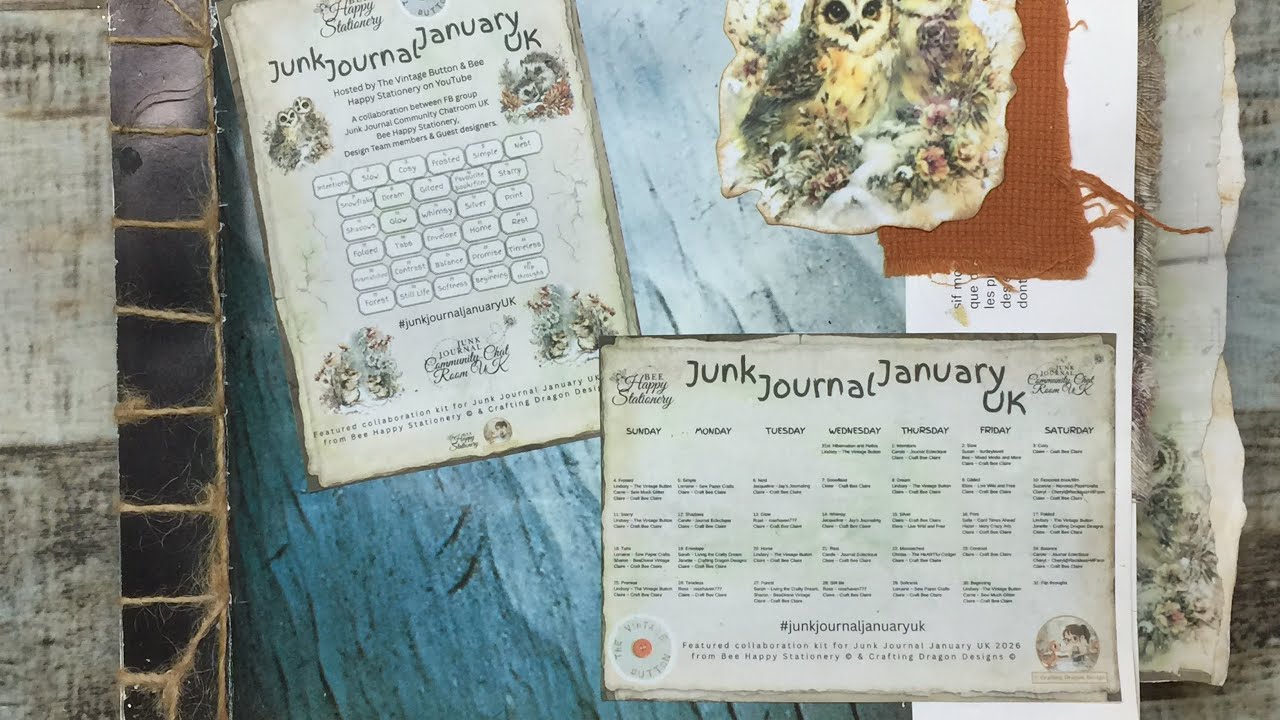 BEE
Happy
Stationery
BUTTON
Junk Journal January
UK
Hosted by The Vintage Button & Bee
Happy Stationery on YouTube
A collaboration between FB group
Junk Journal Community Chatroom UK
Bee Happy Stationery,
Design Team members & Guest designers.
Intentions Slow Cosy Frosted Simple Nest
Snowflake Dream Gilded Favourite book/film Starry
Shadows Glow Whimsy Silver Print
Folded Tabs Envelope Home Rest
Mismatched Contrast Balance Promise Timeless
Forest Still Life Softness Beginning flip throughs
#junkjournaljanuaryUK
JUNK
JOURNAL
Community Chat
Room UK
Featured collaboration kit for Junk Journal January UK
from Bee Happy Stationery © & Crafting Dragon Desi
Bee
Happy
Stationery
sif mo
que d
les p
des
dont
BEE
Happy
Stationery
Junk Journal January
UK
JUNK
JOURNAL
Community Chat
Room UK
SUNDAY MONDAY TUESDAY WEDNESDAY THURSDAY FRIDAY SATURDAY
Lindsey - The Vintage Button
Carole - Journal Eclectique
Claire - Craft Bee Claire
2. Slow
Bex - Mixed Media and More
Claire - Craft Bee Claire
3. Cosy
Claire - Craft Bee Claire
4. Frosted
Lindsey - The Vintage Button
Carrie - Sew Much Glitter
Claire - Craft Bee Claire
5. Simple
Lorraine - Sew Paper Crafts
Claire - Craft Bee Claire
6. Nest
Jacqueline - Jay's Journaling
Claire - Craft Bee Claire
7. Snowflake
Claire - Craft Bee Claire
8. Dream
Lindsey - The Vintage Button
Claire - Craft Bee Claire
9. Gilded
Elise - Live Wild and Free
Claire - Craft Bee Claire
10. Favourite book/film
Claire - Craft Bee Claire
11. Starry
Lindsey - The Vintage Button
Claire - Craft Bee Claire
12. Shadows
Carole - Journal Eclectique
Claire - Craft Bee Claire
13. Glow
Claire - Craft Bee Claire
14. Whimsy
Jacqueline - Jay's Journaling
Claire - Craft Bee Claire
15. Silver
Claire - Craft Bee Claire
Elise - Live Wild and Free
16. Print
Claire - Craft Bee Claire
17. Folded
Lindsey - The Vintage Button
Janelle - Crafting Dragon Designs
Claire - Craft Bee Claire
18. Tabs
Lorraine - Sew Paper Crafts
Sharon - Beachtree Vintage
Claire - Craft Bee Claire
19. Envelope
Sarah - Living the Crafty Dream
Janelle - Crafting Dragon Designs
Claire - Craft Bee Claire
20. Home
Lindsey - The Vintage Button
Claire - Craft Bee Claire
21. Rest
Carole - Journal Eclectique
Claire - Craft Bee Claire
22. Mismatched
Claire - Craft Bee Claire
23. Contrast
Claire - Craft Bee Claire
24. Balance
Carole - Journal Eclectique
Claire - Craft Bee Claire
25. Promise
Lindsey - The Vintage Button
Claire - Craft Bee Claire
26. Timeless
Claire - Craft Bee Claire
27. Forest
Sarah - Living the Crafty Dream,
Sharon - Beachtree Vintage
Claire - Craft Bee Claire
28. Still life
Claire - Craft Bee Claire
29. Softness
Lorraine - Sew Paper Crafts
Claire - Craft Bee Claire
30. Beginning
Lindsey - The Vintage Button
Carrie - Sew Much Glitter
Claire - Craft Bee Claire
flip throughs
#junkjournaljanuaryuk
THE VINTAGE BUTTON
Featured collaboration kit for Junk Journal January UK 2026
from Bee Happy Stationery © & Crafting Dragon Designs ©
Crafting Dragon Design